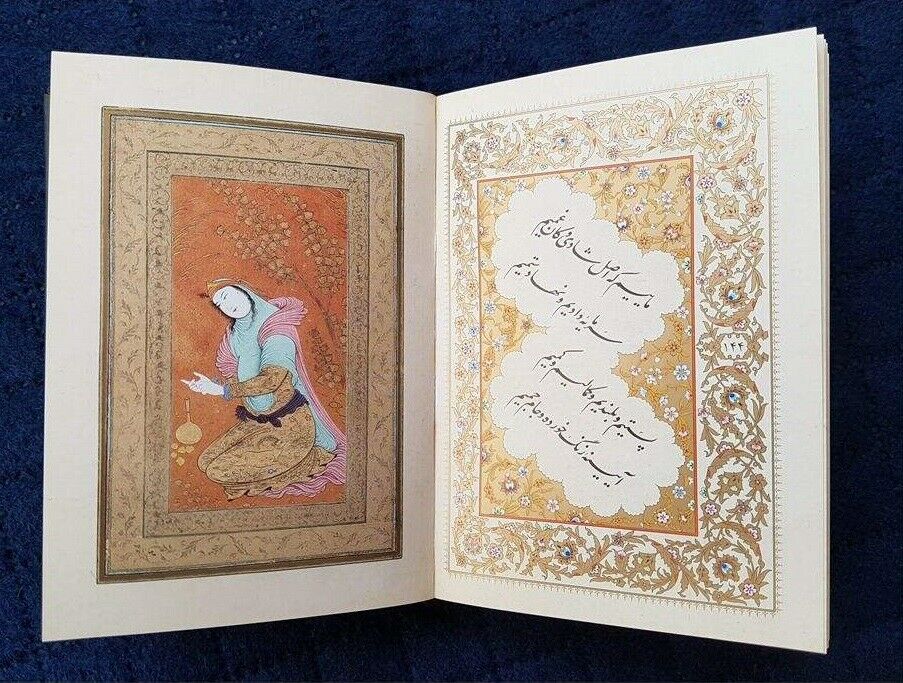 ماییم که اصل شادی و کان غمیم
سرمایه دادیم و نهاد ستمیم
پستیم و بلندیم و کمالیم و کمیم
آیینه زنگ خورده و جام جمیم
۱۴۴